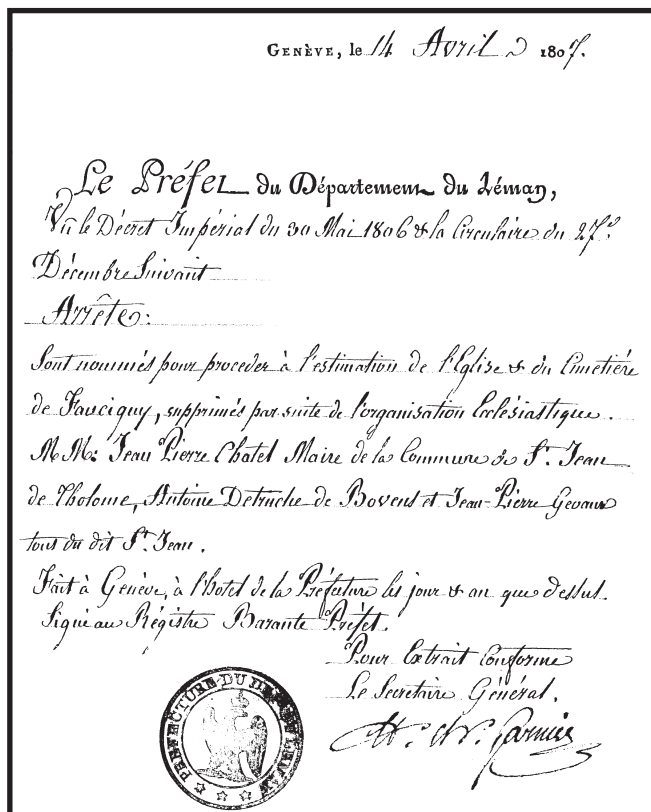 GENÈVE, le 14 Avril 1807.
Le Préfet du Département du Léman,
Vû le Décret Impérial du 30 Mai 1806 & la Circulaire du 27
Décembre Suivant
Arrête:
Sont nommés pour proceder à l'estimation de l'Eglise & du Cimetiére
de Faucigny, supprimés par suite de l'organisation Ecclésiastique.
MM: Jean Pierre Chatel Maire de la Commune de St. Jean
de Tholome, Antoine Detruche de Bovens et Jean-Pierre Gevaux
tous du dit St. Jean.
Fait à Genève, à l'hotel de la Préfecture les jour & an que dessus.
Signé au Régistre Barante Préfet.
Pour Extrait Conforme
Le Secretaire Général.
PREFECTURE DU DEP. DU LEMAN